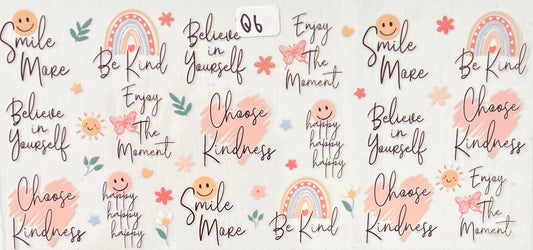 Smile
More
Be Kind
Believe
in
Yourself
06
Enjoy
The
Moment
Smile
More
Be Kind
Believe
in
Yourself
Enjoy
The
Moment
Choose
Kindness
happy
happy
happy
Believe
in
Yourself
Choose
Kindness
Choose
Kindness
happy
happy
happy
Smile
More
Be Kind
Choose
Kindness
Enjoy
The
Moment